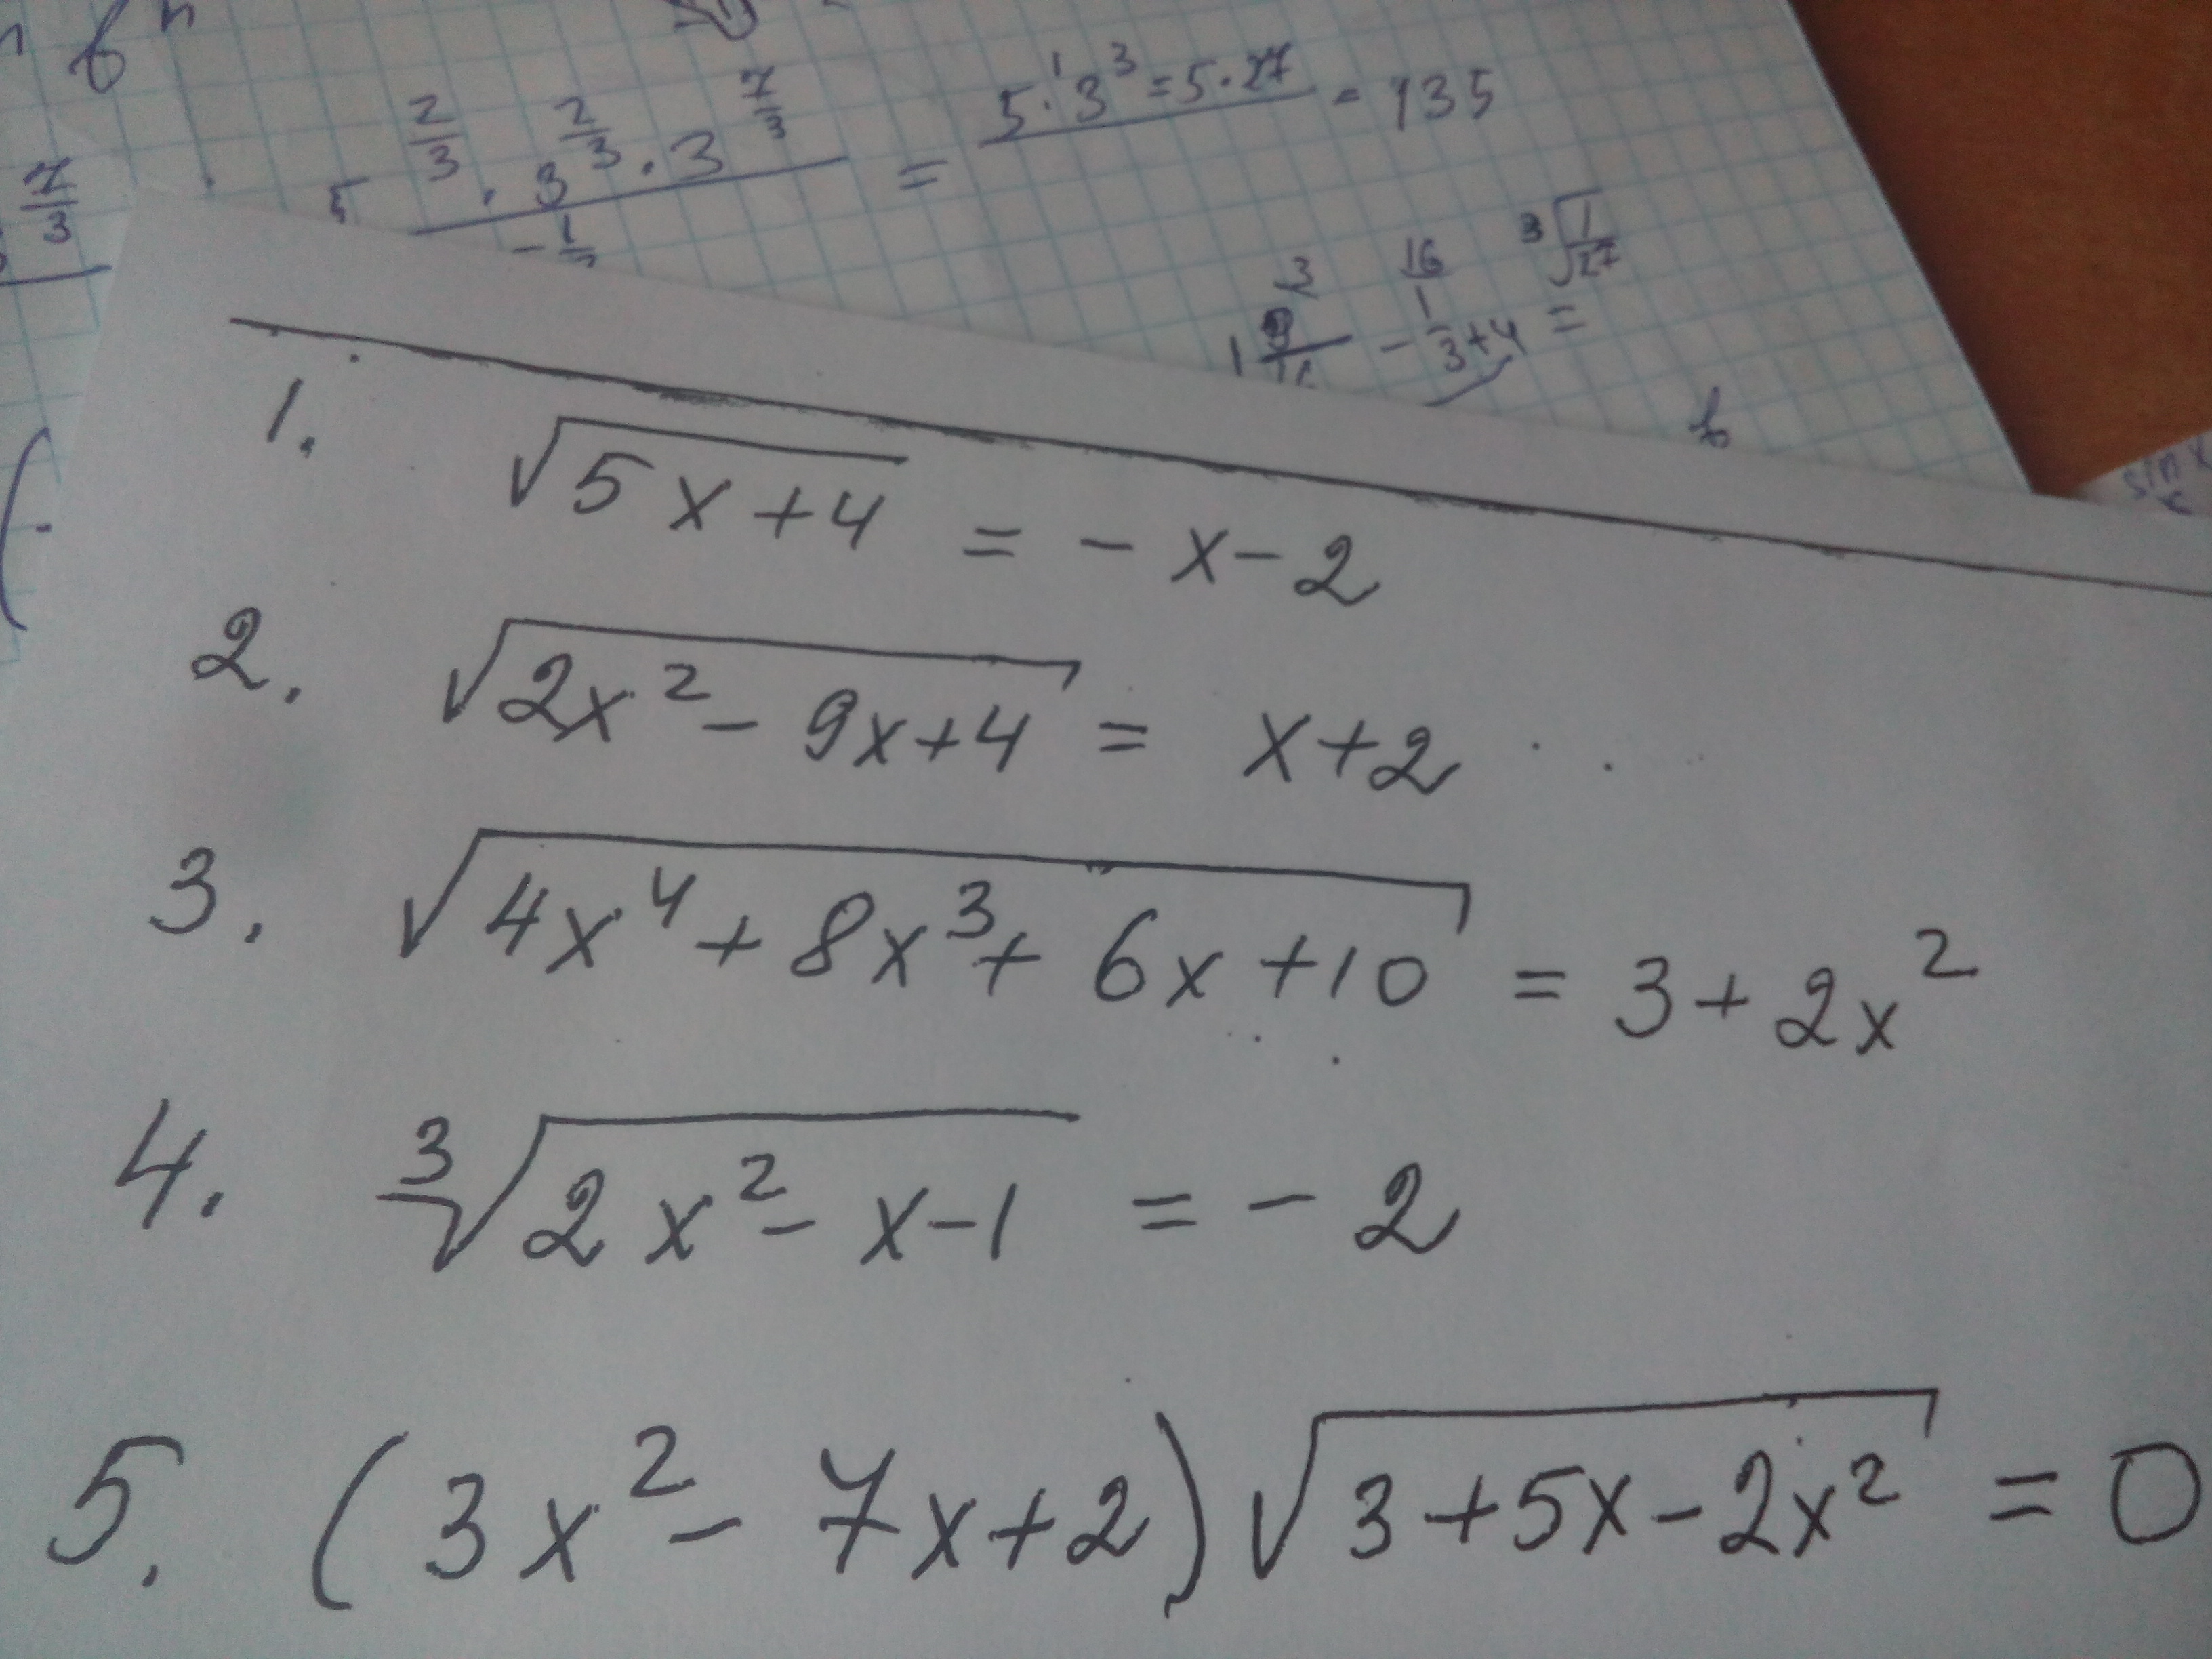 5^(2/3) · 3^(2/3) · 3^(7/3) = 5^1 · 3^3 = 5 · 27 = 135
7/3
- 1/
3 16 ³√(1/27)
1 9/16 - 1/3 + 4 =
b
sin x
1. √(5x+4) = -x-2
2. √(2x² - 9x+4) = x+2
3. √(4x⁴ + 8x³ + 6x + 10) = 3 + 2x²
4. ³√(2x² - x - 1) = -2
5. (3x² - 7x + 2) √(3 + 5x - 2x²) = 0